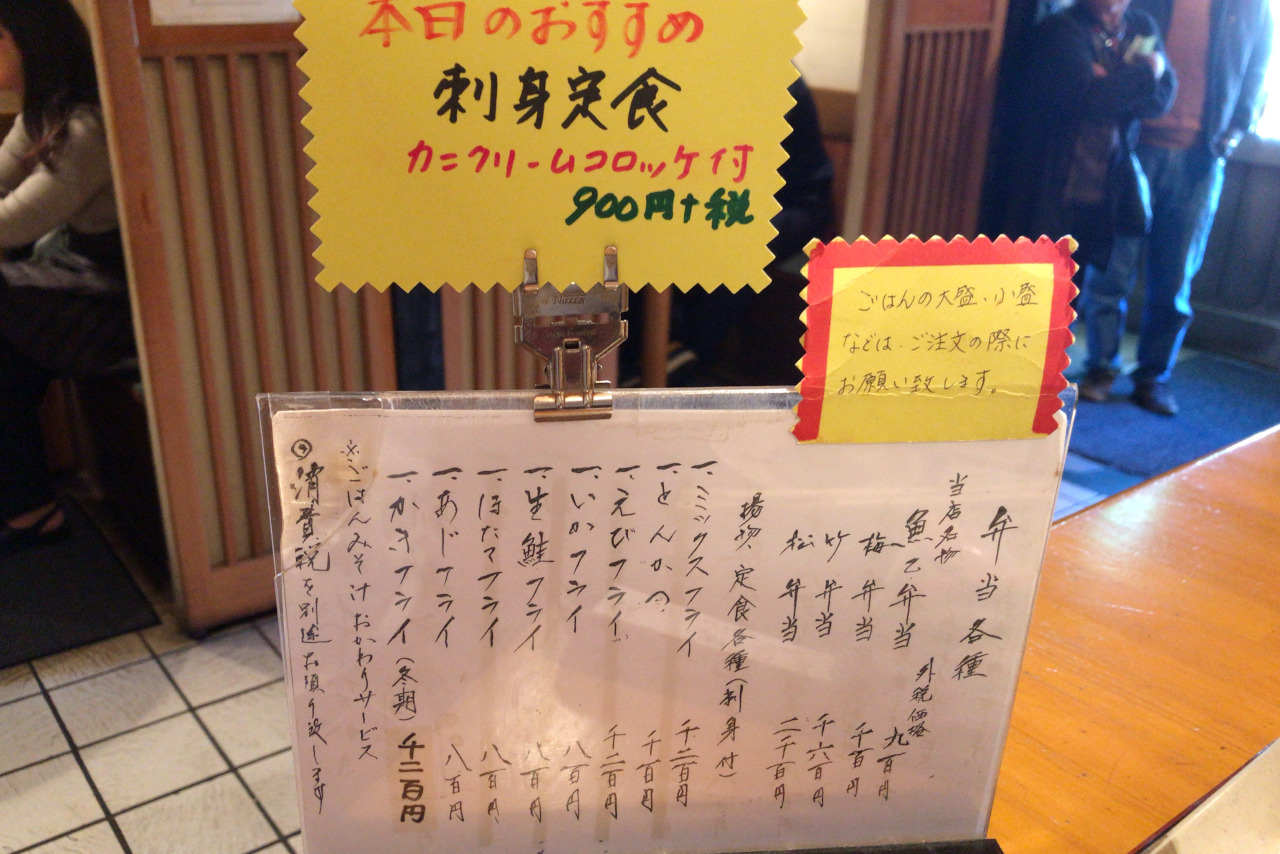 本日のおすすめ
刺身定食
カニクリームコロッケ付
900円+税
ごはんの大盛・小盛
などは、ご注文の際に
お願い致します。
弁当各種
当店名物
魚乙弁当 外税価格 九百円
梅弁当 千百円
竹弁当 千六百円
松弁当 二千百円
揚物、定食各種(刺身付)
一、ミックスフライ 千二百円
一、とんかつ 千百円
一、えびフライ 千二百円
一、いかフライ 八百円
一、生鮭フライ 八百円
一、ほたてフライ 八百円
一、あじフライ 八百円
一、かきフライ(冬期) 千二百円
※ごはんみそ汁おかわりサービス
消費税を別途お預り致します